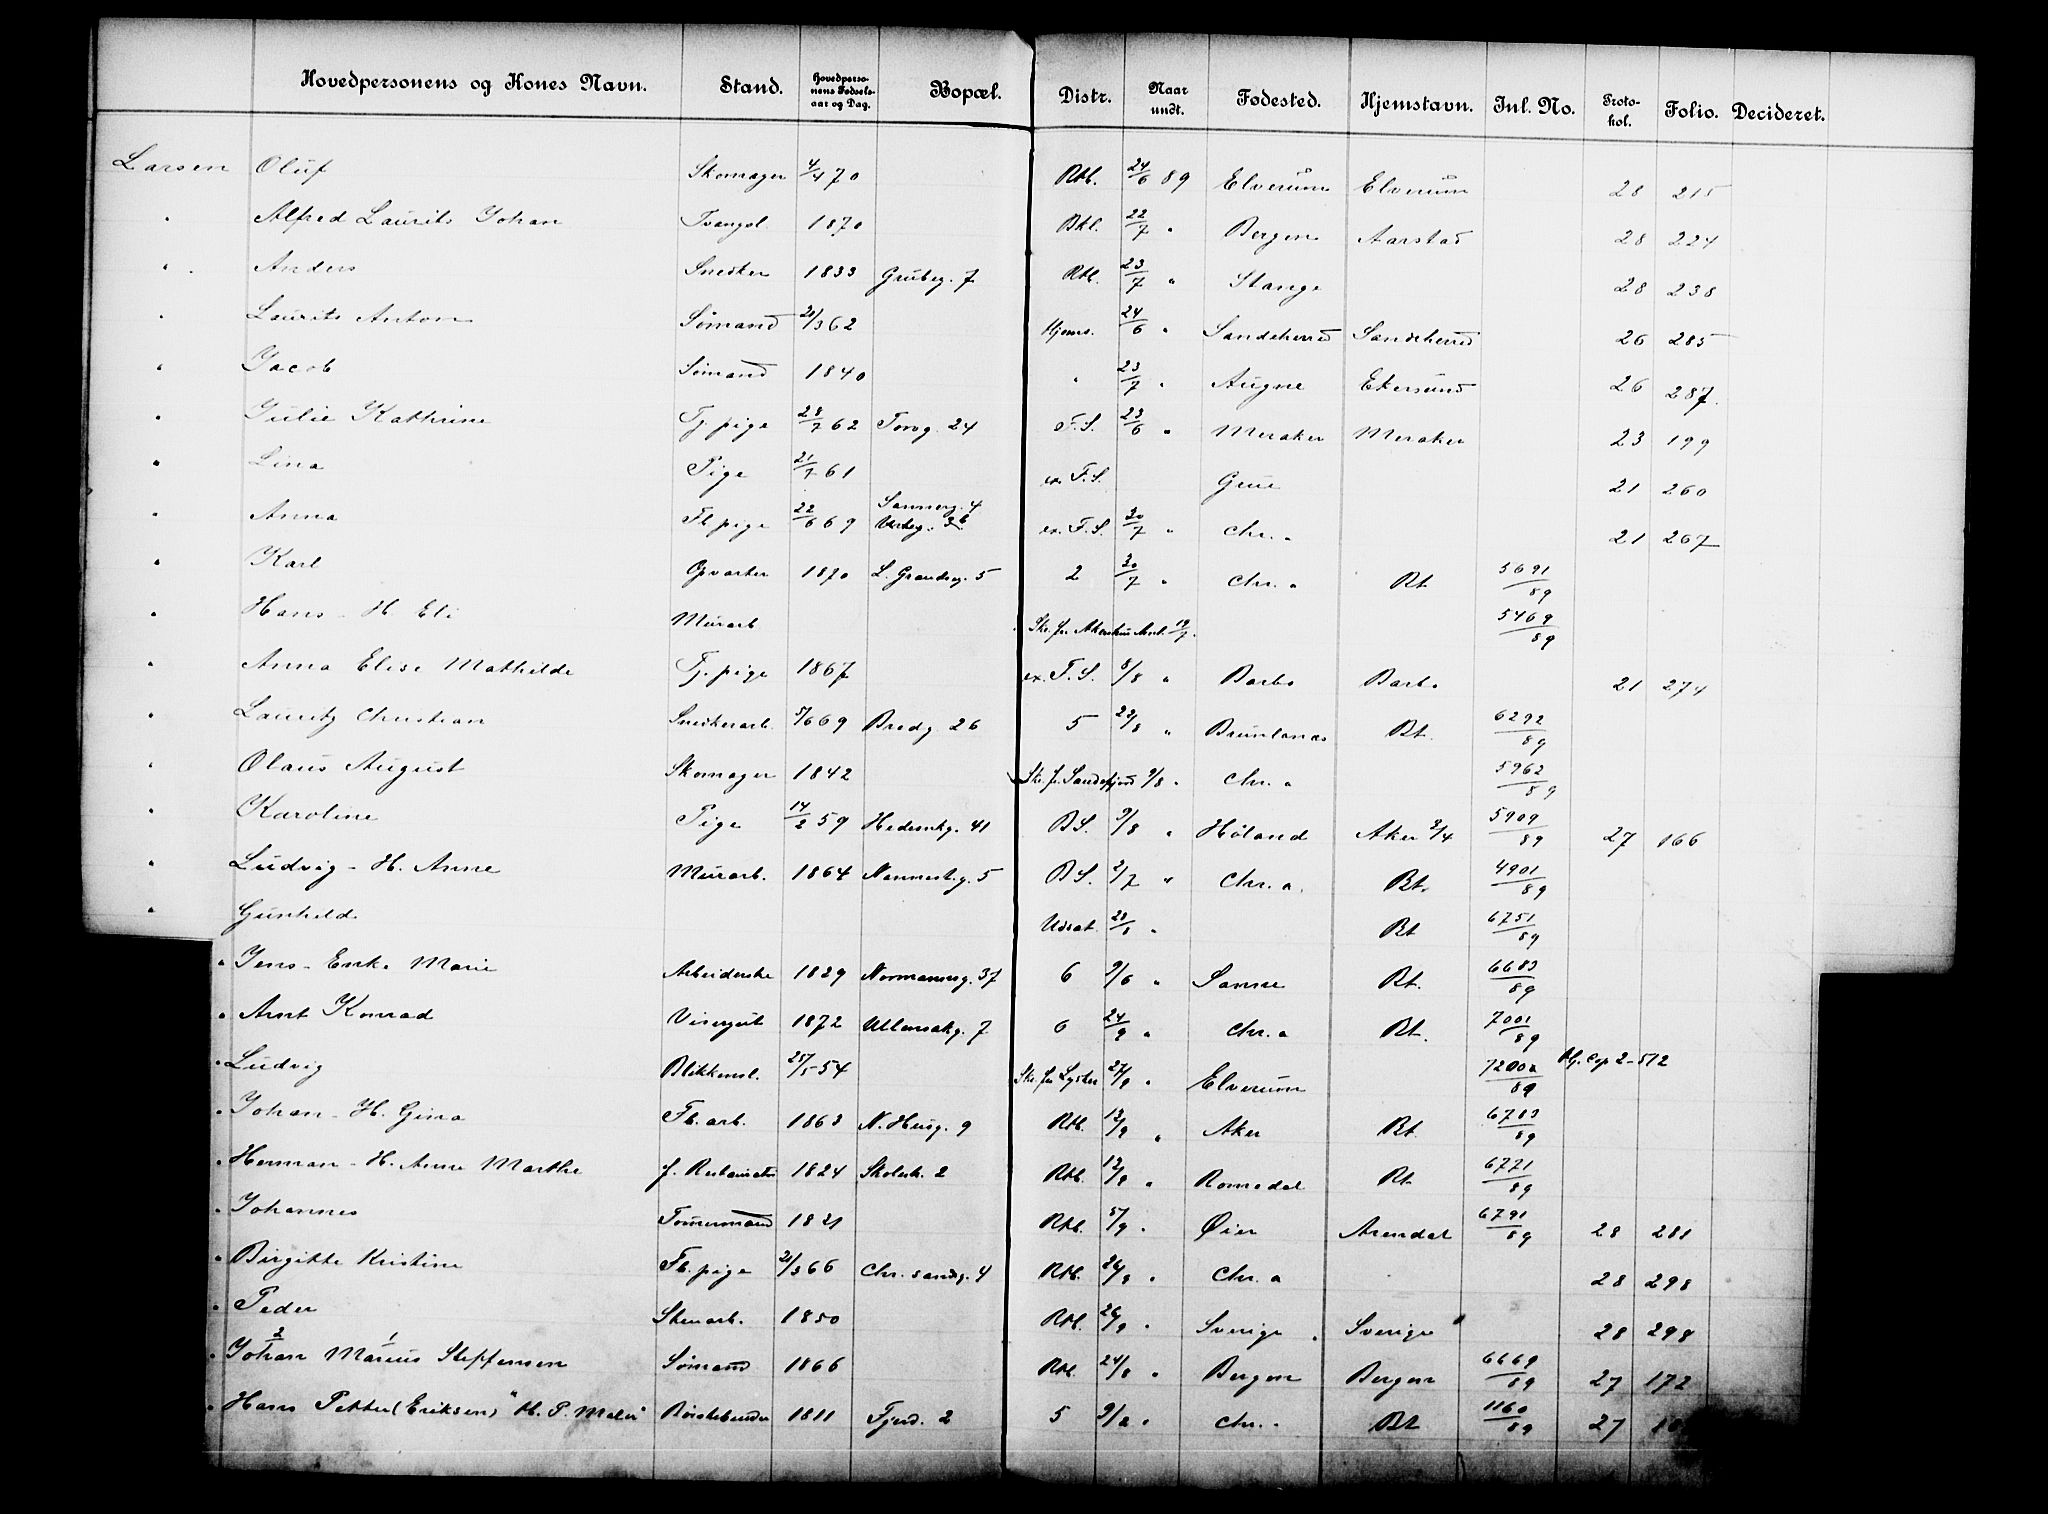 Hovedpersonens og Kones Navn. Stand. Hovedperso-nens Fødsels-aar og Dag. Bopæl. Distr. Naar undt. Fødested. Hjemstavn. Inl. No. Proto-kol. Folio. Decideret.
Larsen Oluf Skomager 4/4 70 Rtb. 24/6 89 Elverum Elverum 28 215
" Alfred Laurits Johan Tvangsl. 1870 Bkl. 22/7 " Bergen Aarstad 28 224
" Anders Snedker 1833 Grubeg. 7 Rtb. 23/7 " Stange 28 238
" Laurits Anton Sømand 20/3 62 Hjems. 24/6 " Sandeherred Sandeherred 26 285
" Jacob Sømand 1840 " 23/7 " Augne Ekersund 26 287.
" Julie Kathrine Tj. pige 28/7 62 Torvg. 24 F.S. 23/6 " Meraker Meraker 23 199
" Lina Pige 21/7 61 ex. F.S. Grue 21 260
" Anna Fb pige 22/6 69 Sannerg. 4 36 ex. F.S. 30/7 " Chr.a 21 267
" Karl Opvarter 1870 L. Grændseg. 5 2 30/7 " Chr.a Bt 5691/89
" Hans - H. Eli Murarb Ske. fr. Akershus Amt. 19/7. 5469/89
" Anna Elise Mathilde Tj. pige 1867 ex. F.S. 8/8 " Barbo Barbo 21 274
" Lauritz Christian Snedkerarb. 5/6 69 Bredg. 26 5 23/8 " Brunlanæs Bt. 6292/89
" Olaus August Skomager 1842 Ske. fr. Sandefjord 9/8 " Chr.a 5962/89
" Karoline Pige 14/2 59 Hedemkg. 41 BS. 9/8 " Høland Aker 2/4 5909/89 27 166
" Ludvig - H. Anne Murarb. 1864 Nannestg. 5 BS. 2/7 " Chr.a. Bt. 4901/89
" Gunhild Udsat. 28/8 " Bt 6751/89
" Jens - Enke Marie Arbeiderske 1829 Normansg. 37 6 9/6 " Sanne Bt. 6683/89
" Arnt Konrad Visergut 1872 Ullensakg. 7 6 24/9 " Chr.a Bt. 7001/89
" Ludvig Blikkensl. 25/5 54 Ske. fra Lyster 27/9 " Elverum 7200/89 Cop 2-512
" Johan - H. Gina Fb. arb. 1863 N. Husg. 9 Rtb. 12/9 " Aker Bt. 6783/89
" Herman - H. Anne Marthe f. Restauratør 1824 Skolest. 2 Rtb. 12/9 " Romedal Bt 6771/89
" Johannes Tømmermand 1821 Rtb. 5/9 " Øier Arendal 6791/89 28 281
" Birgitte Kristine Fb. pige 20/3 66 Chr. sandsg. 4 Rtb. 26/9 " Chr.a 28 298
" Peder Stenarb. 1850 Rtb. 26/9 " Sverige Sverige 28 298
2 1
" Johan Marius Steffensen Sømand 1866 Rtb. 24/8 " Bergen Bergen 6669/89 27 172
" Hans Petter (Eriksen) " H. P. Børstebinder 1811 Fjerd. 2 5 9/2 " Chr.a Bt 1160/89 27